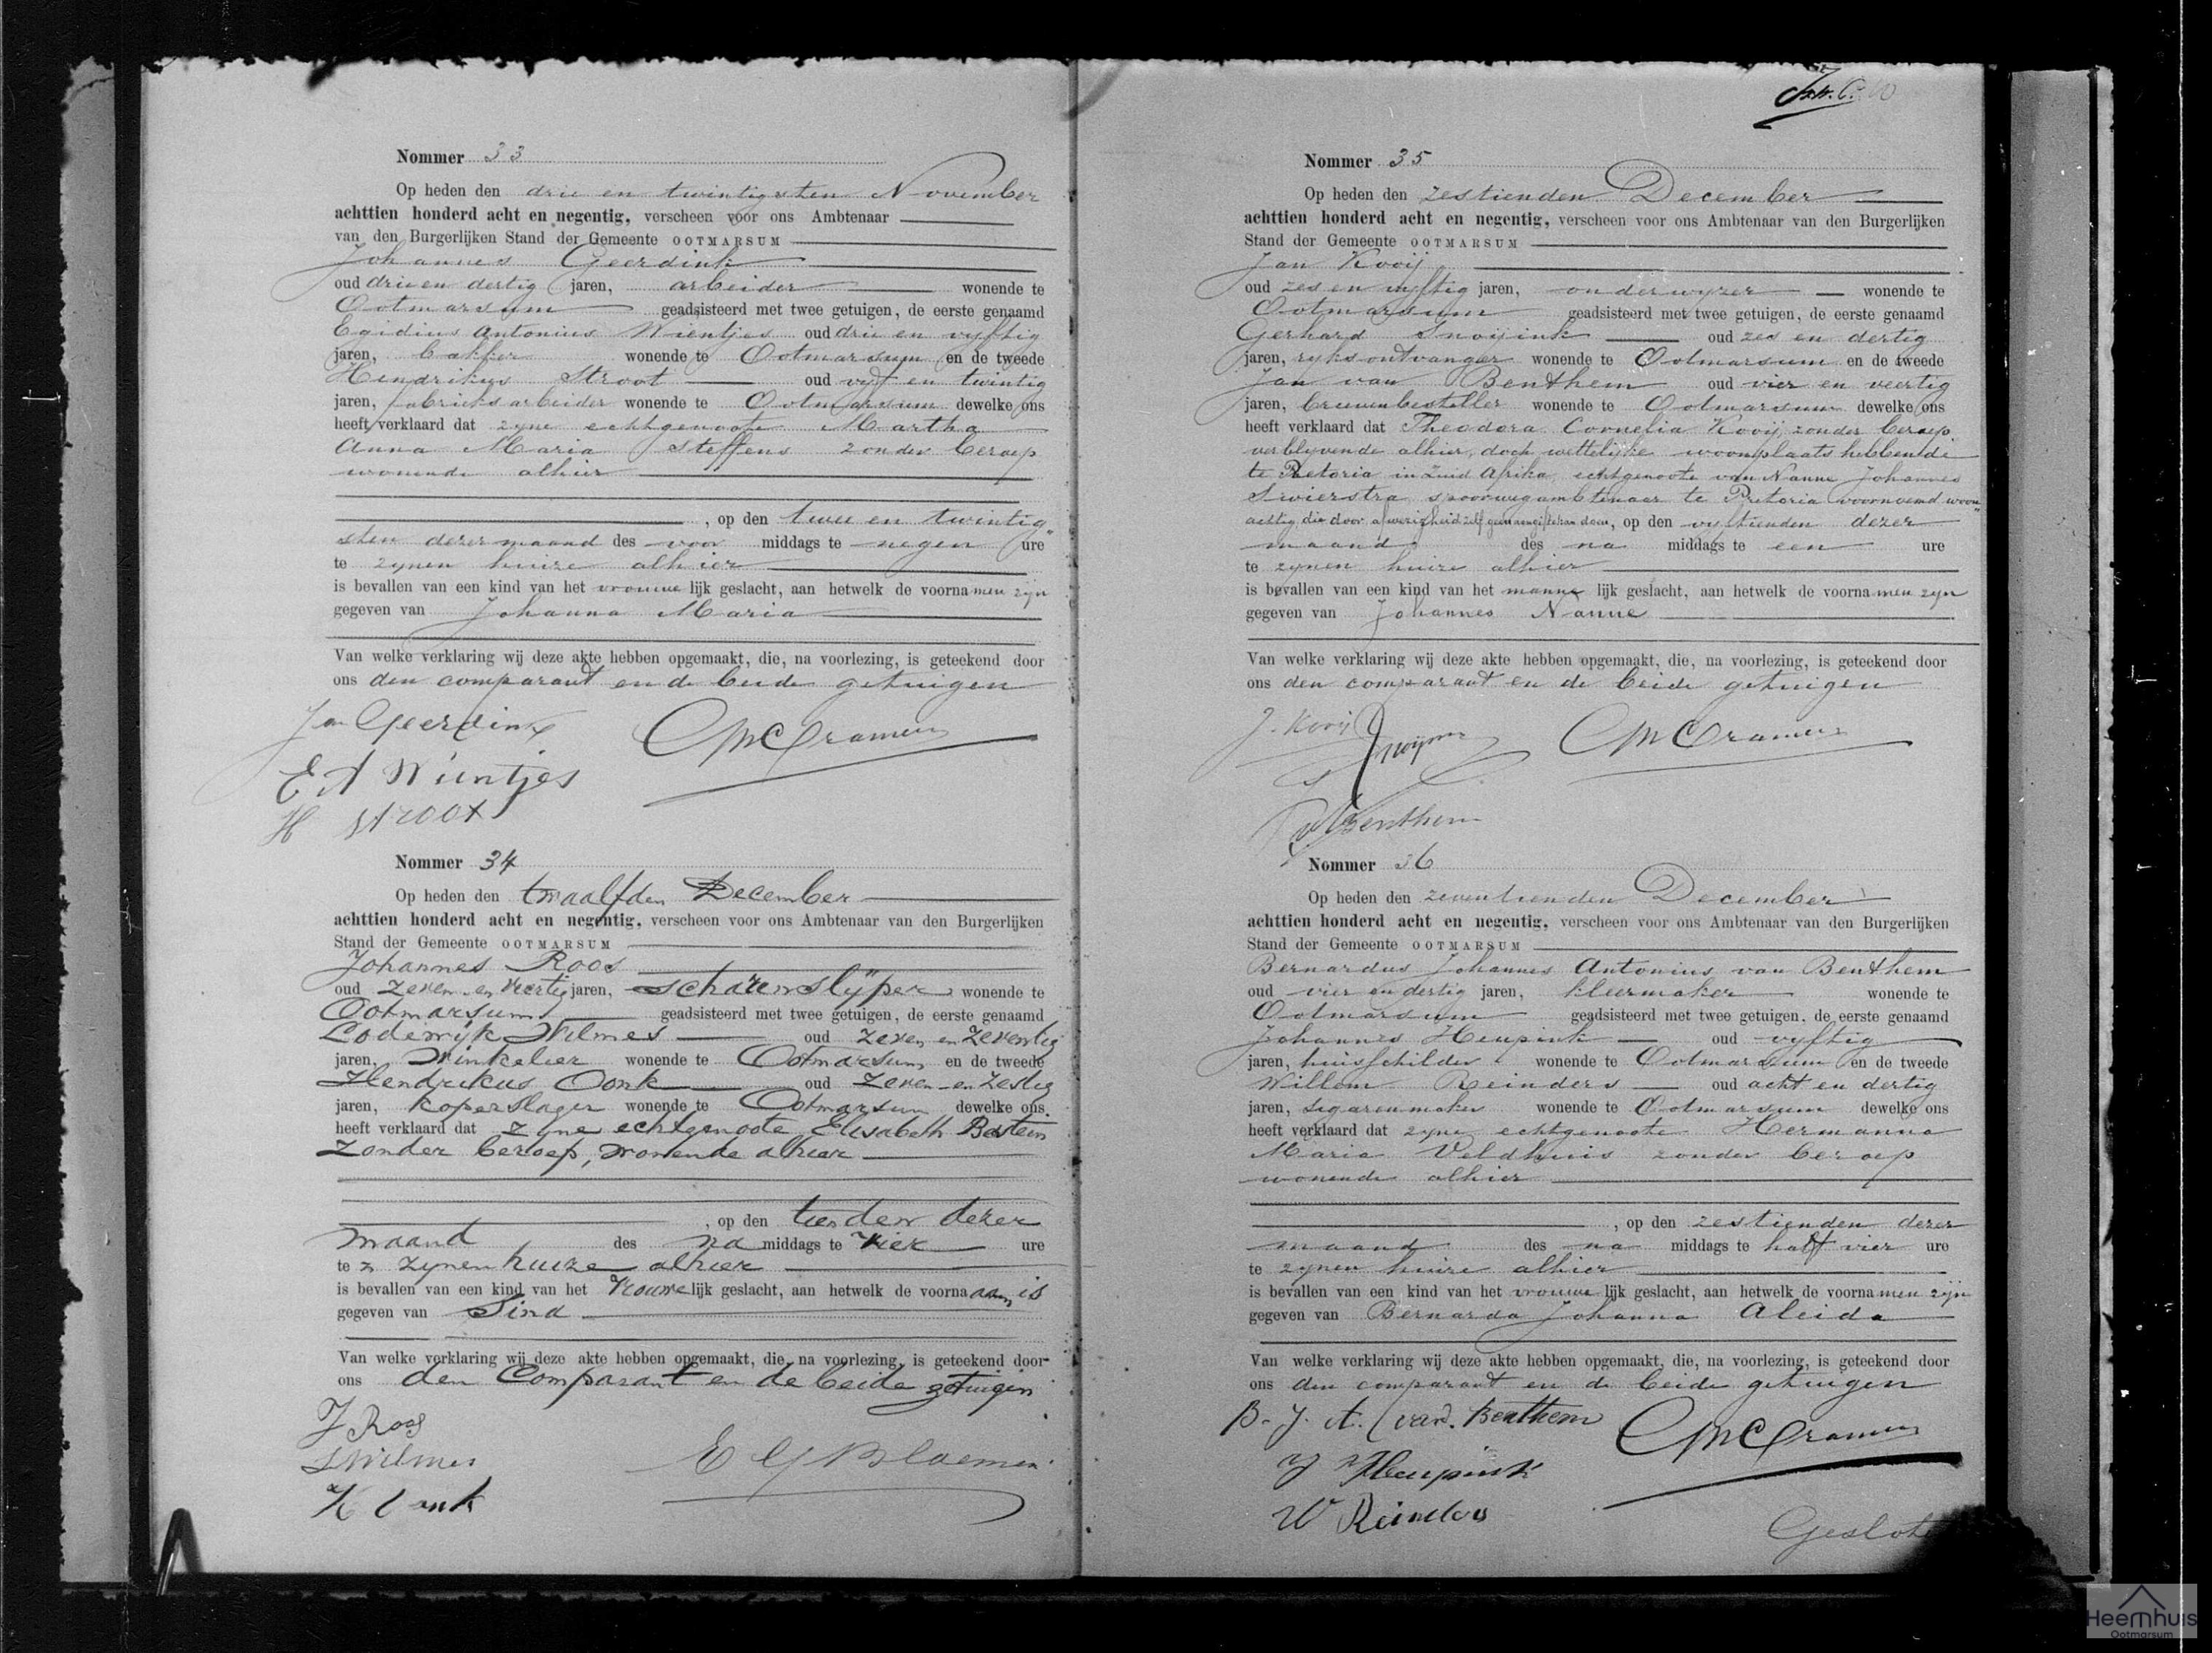 Nommer 33
Op heden den drie en twintigsten November
achttien honderd acht en negentig, verscheen voor ons Ambtenaar
van den Burgerlijken Stand der Gemeente OOTMARSUM
Johannes Geerdink
oud drie en dertig jaren, arbeider wonende te
Ootmarsum geadsisteerd met twee getuigen, de eerste genaamd
Egidius Antonius Wientjes oud drie en vyftig
jaren, bakker wonende te Ootmarsum en de tweede
Hendrikus Stroot oud vyf en twintig
jaren, fabrieksarbeider wonende te Ootmarsum dewelke ons
heeft verklaard dat zyne echtgenoote Martha
Anna Maria Steffens zonder beroep
wonende alhier
, op den twee en twintig„
sten dezer maand des voor middags te negen ure
te zynen huize alhier
is bevallen van een kind van het vrouwe lijk geslacht, aan hetwelk de voornamen zijn
gegeven van Johanna Maria
Van welke verklaring wij deze akte hebben opgemaakt, die, na voorlezing, is geteekend door
ons den comparant en de beide getuigen
Joh Geerdink
E A Wientjes
H Stroot
Nommer 34
Op heden den twaalfden December
achttien honderd acht en negentig, verscheen voor ons Ambtenaar van den Burgerlijken
Stand der Gemeente OOTMARSUM
Johannes Roos
oud zeven en veertig jaren, scharenslijper wonende te
Ootmarsum geadsisteerd met twee getuigen, de eerste genaamd
Lodewijk Wilmes oud zeven en zeventig
jaren, Winkelier wonende te Ootmarsum en de tweede
Hendrikus Oonk oud zeven en zestig
jaren, koperslager wonende te Ootmarsum dewelke ons
heeft verklaard dat zyne echtgenoote Elisabeth
zonder beroep, wonende alhier
, op den tienden dezer
maand des na middags te vier ure
te zynen huize alhier
is bevallen van een kind van het vrouwelijk geslacht, aan hetwelk de voornaam is
gegeven van Sina
Van welke verklaring wij deze akte hebben opgemaakt, die, na voorlezing, is geteekend door
ons den Comparant en de beide getuigen
J Roos
L Wilmes
H Oonk
E G Bloemen
Nommer 35
Op heden den zestienden December
achttien honderd acht en negentig, verscheen voor ons Ambtenaar van den Burgerlijken
Stand der Gemeente OOTMARSUM
Jan Kooij
oud zes en vyftig jaren, onderwyzer wonende te
Ootmarsum geadsisteerd met twee getuigen, de eerste genaamd
Gerhard Snoijink oud zes en dertig
jaren, ryksontvanger wonende te Ootmarsum en de tweede
Jan van Benthem oud vier en veertig
jaren, brievenbesteller wonende te Ootmarsum dewelke ons
heeft verklaard dat Theodora Cornelia Kooij zonder beroep
verblyvende alhier, doch wettelijke woonplaats hebbende
te Pretoria in Zuid Afrika, echtgenoote van Nanne Johannes
Swierstra spoorwegambtenaar te Pretoria voornoemd woon„
achtig, die door afwezigheid zelf geen aangifte kan doen, op den vyftienden dezer
maand des na middags te een ure
te zynen huize alhier
is bevallen van een kind van het manne lijk geslacht, aan hetwelk de voornamen zyn
gegeven van Johannes Nanne
Van welke verklaring wij deze akte hebben opgemaakt, die, na voorlezing, is geteekend door
ons den comparant en de beide getuigen
J. Kooij
v Benthem
Nommer 36
Op heden den zeventienden December
achttien honderd acht en negentig, verscheen voor ons Ambtenaar van den Burgerlijken
Stand der Gemeente OOTMARSUM
Bernardus Johannes Antonius van Benthem
oud vier en dertig jaren, kleermaker wonende te
Ootmarsum geadsisteerd met twee getuigen, de eerste genaamd
Johannes Heupink oud vyftig
jaren, huisschilder wonende te Ootmarsum en de tweede
Willem Reinders oud acht en dertig
jaren, sigarenmaker wonende te Ootmarsum dewelke ons
heeft verklaard dat zyne echtgenoote Hermanna
Maria Veldhuis zonder beroep
wonende alhier
, op den zestienden dezer
maand des na middags te half vier ure
te zynen huize alhier
is bevallen van een kind van het vrouwe lijk geslacht, aan hetwelk de voornamen zijn
gegeven van Bernarda Johanna Aleida
Van welke verklaring wij deze akte hebben opgemaakt, die, na voorlezing, is geteekend door
ons den comparant en de beide getuigen
B. J. A. van Benthem
J Heupink
W Reinders
Heemhuis
Ootmarsum